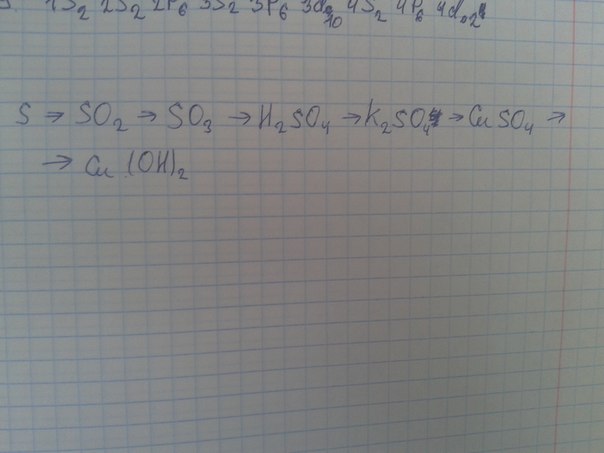 1S2 2S2 2P6 3S2 3P6 3d10 4S2 4P6 4d
S → SO2 → SO3 → H2SO4 → K2SO4 → CuSO4 →
→ Cu (OH)2